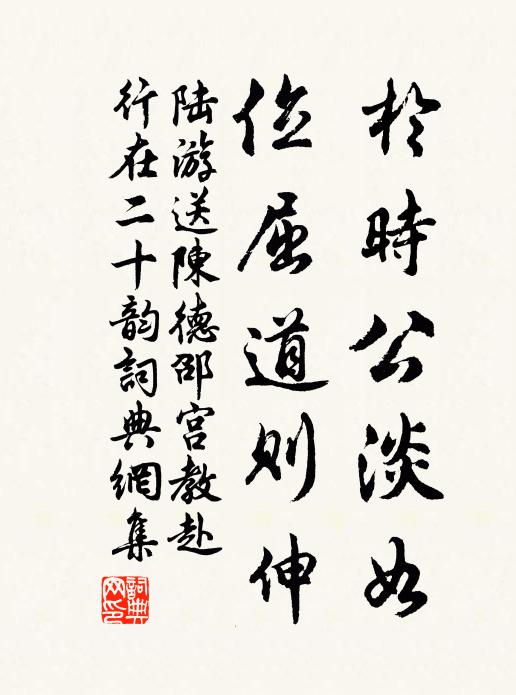 於時公淡如
位屈道則伸
陸游送陳德邵宫教赴
行在二十韵詞典網集
詞典
网印